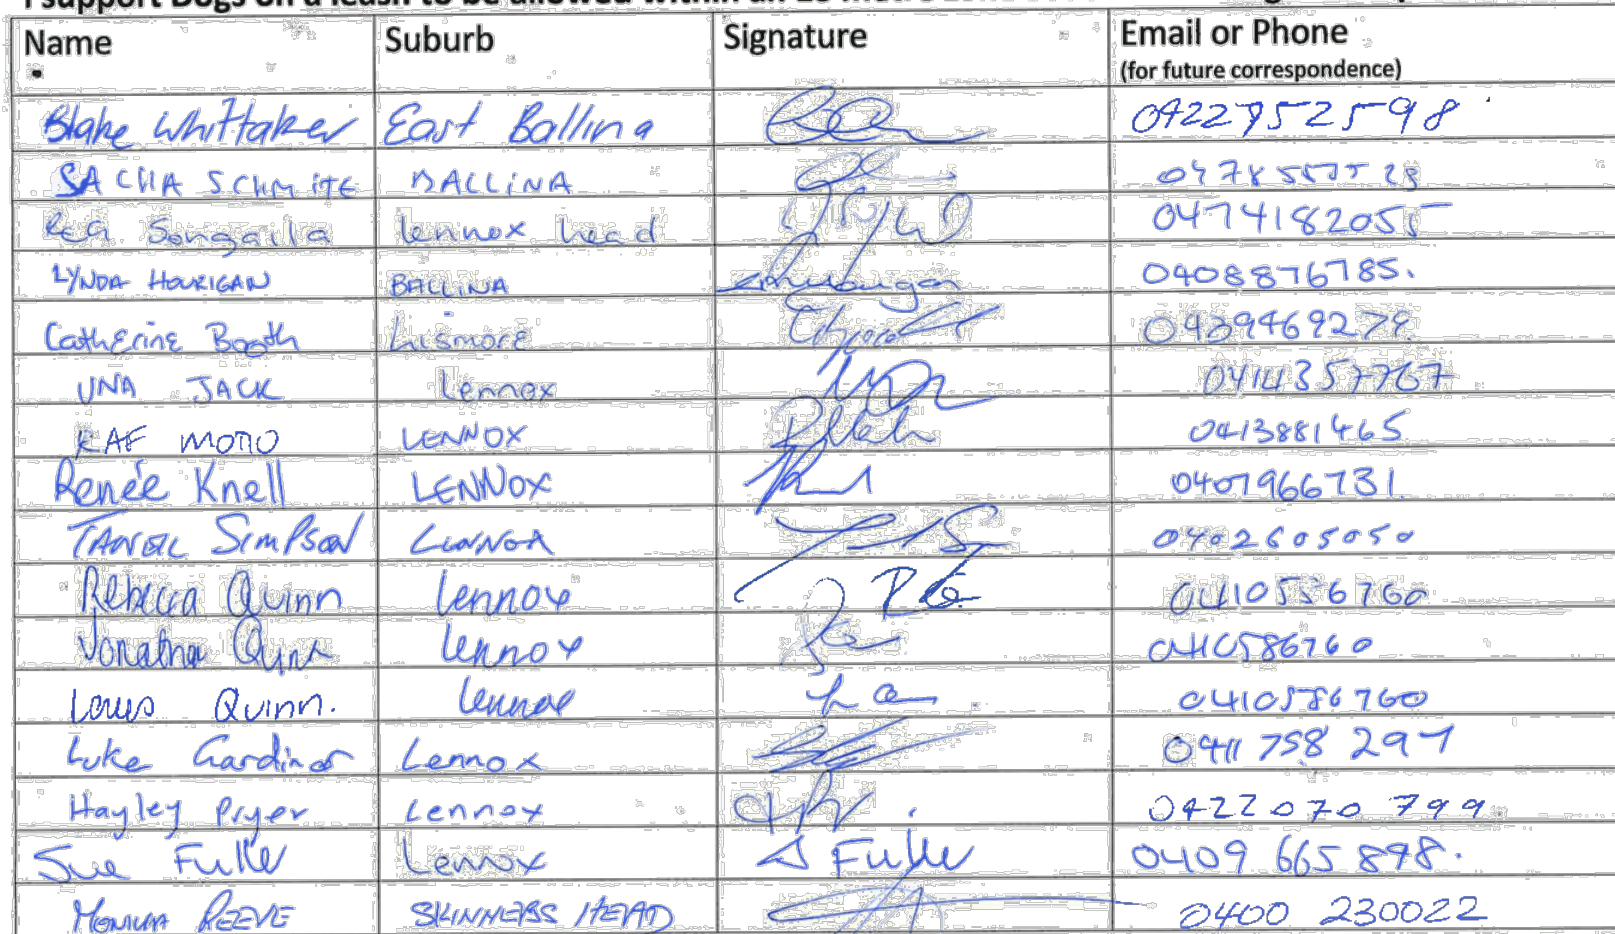 I support Dogs on a leash to be allowed within an
Name Suburb Signature Email or Phone
(for future correspondence)
Blake Whittaker East Ballina 0422752598
SACHA SCHMITE BALLINA
Songaila lennox head 0474182055
LYNDA HOURIGAN BALLINA 0408876785.
Catherine Booth Lismore
UNA JACK Lennox 0414357767
RAF MOTO LENNOX 0413881465
Renée Knell LENNOX 0407966731
Simpson 0402605050
Rebecca Quinn Lennox
Jonathan Quinn lennox 0410586760
Louis Quinn. lennox 0410586760
Luke Gardiner Lennox 0411 758 297
Hayley Pryer Lennox 0422 070 799
Sue Fuller Lennox S Fuller 0409 665 898.
REEVE SKINNERS HEAD 0400 230022